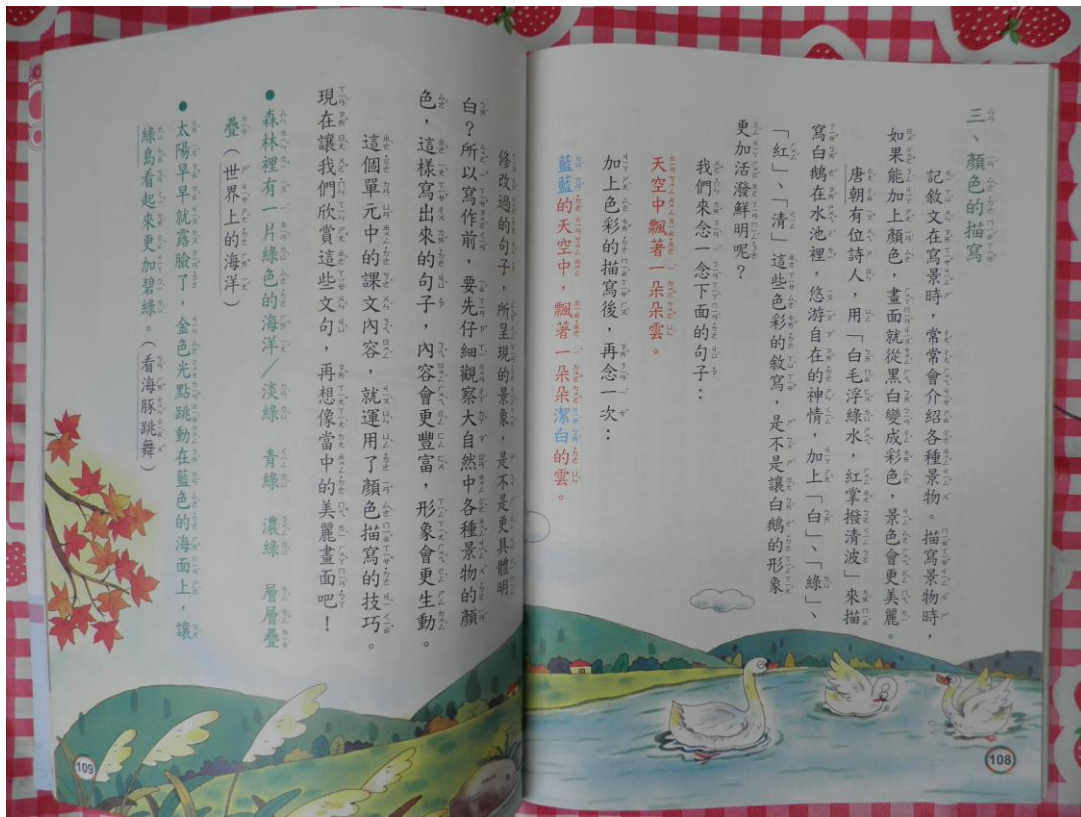 三、顏色的描寫
記敘文在寫景時，常常會介紹各種景物。描寫景物時，
如果能加上顏色，畫面就從黑白變成彩色，景色會更美麗。
唐朝有位詩人，用「白毛浮綠水，紅掌撥清波」來描
寫白鵝在水池裡，悠游自在的神情，加上「白」、「綠」、
「紅」、「清」這些色彩的敘寫，是不是讓白鵝的形象
更加活潑鮮明呢？
我們來念一念下面的句子：
天空中飄著一朵朵雲。
加上色彩的描寫後，再念一次：
藍藍的天空中，飄著一朵朵潔白的雲。
108
修改過的句子，所呈現的景象，是不是更具體明
白？所以寫作前，要先仔細觀察大自然中各種景物的顏
色，這樣寫出來的句子，內容會更豐富，形象會更生動。
這個單元中的課文內容，就運用了顏色描寫的技巧。
現在讓我們欣賞這些文句，再想像當中的美麗畫面吧！
●森林裡有一片綠色的海洋／淡綠 青綠 濃綠 層層疊
疊（世界上的海洋）
●太陽早早就露臉了，金色光點跳動在藍色的海面上，讓
綠島看起來更加碧綠。（看海豚跳舞）
109